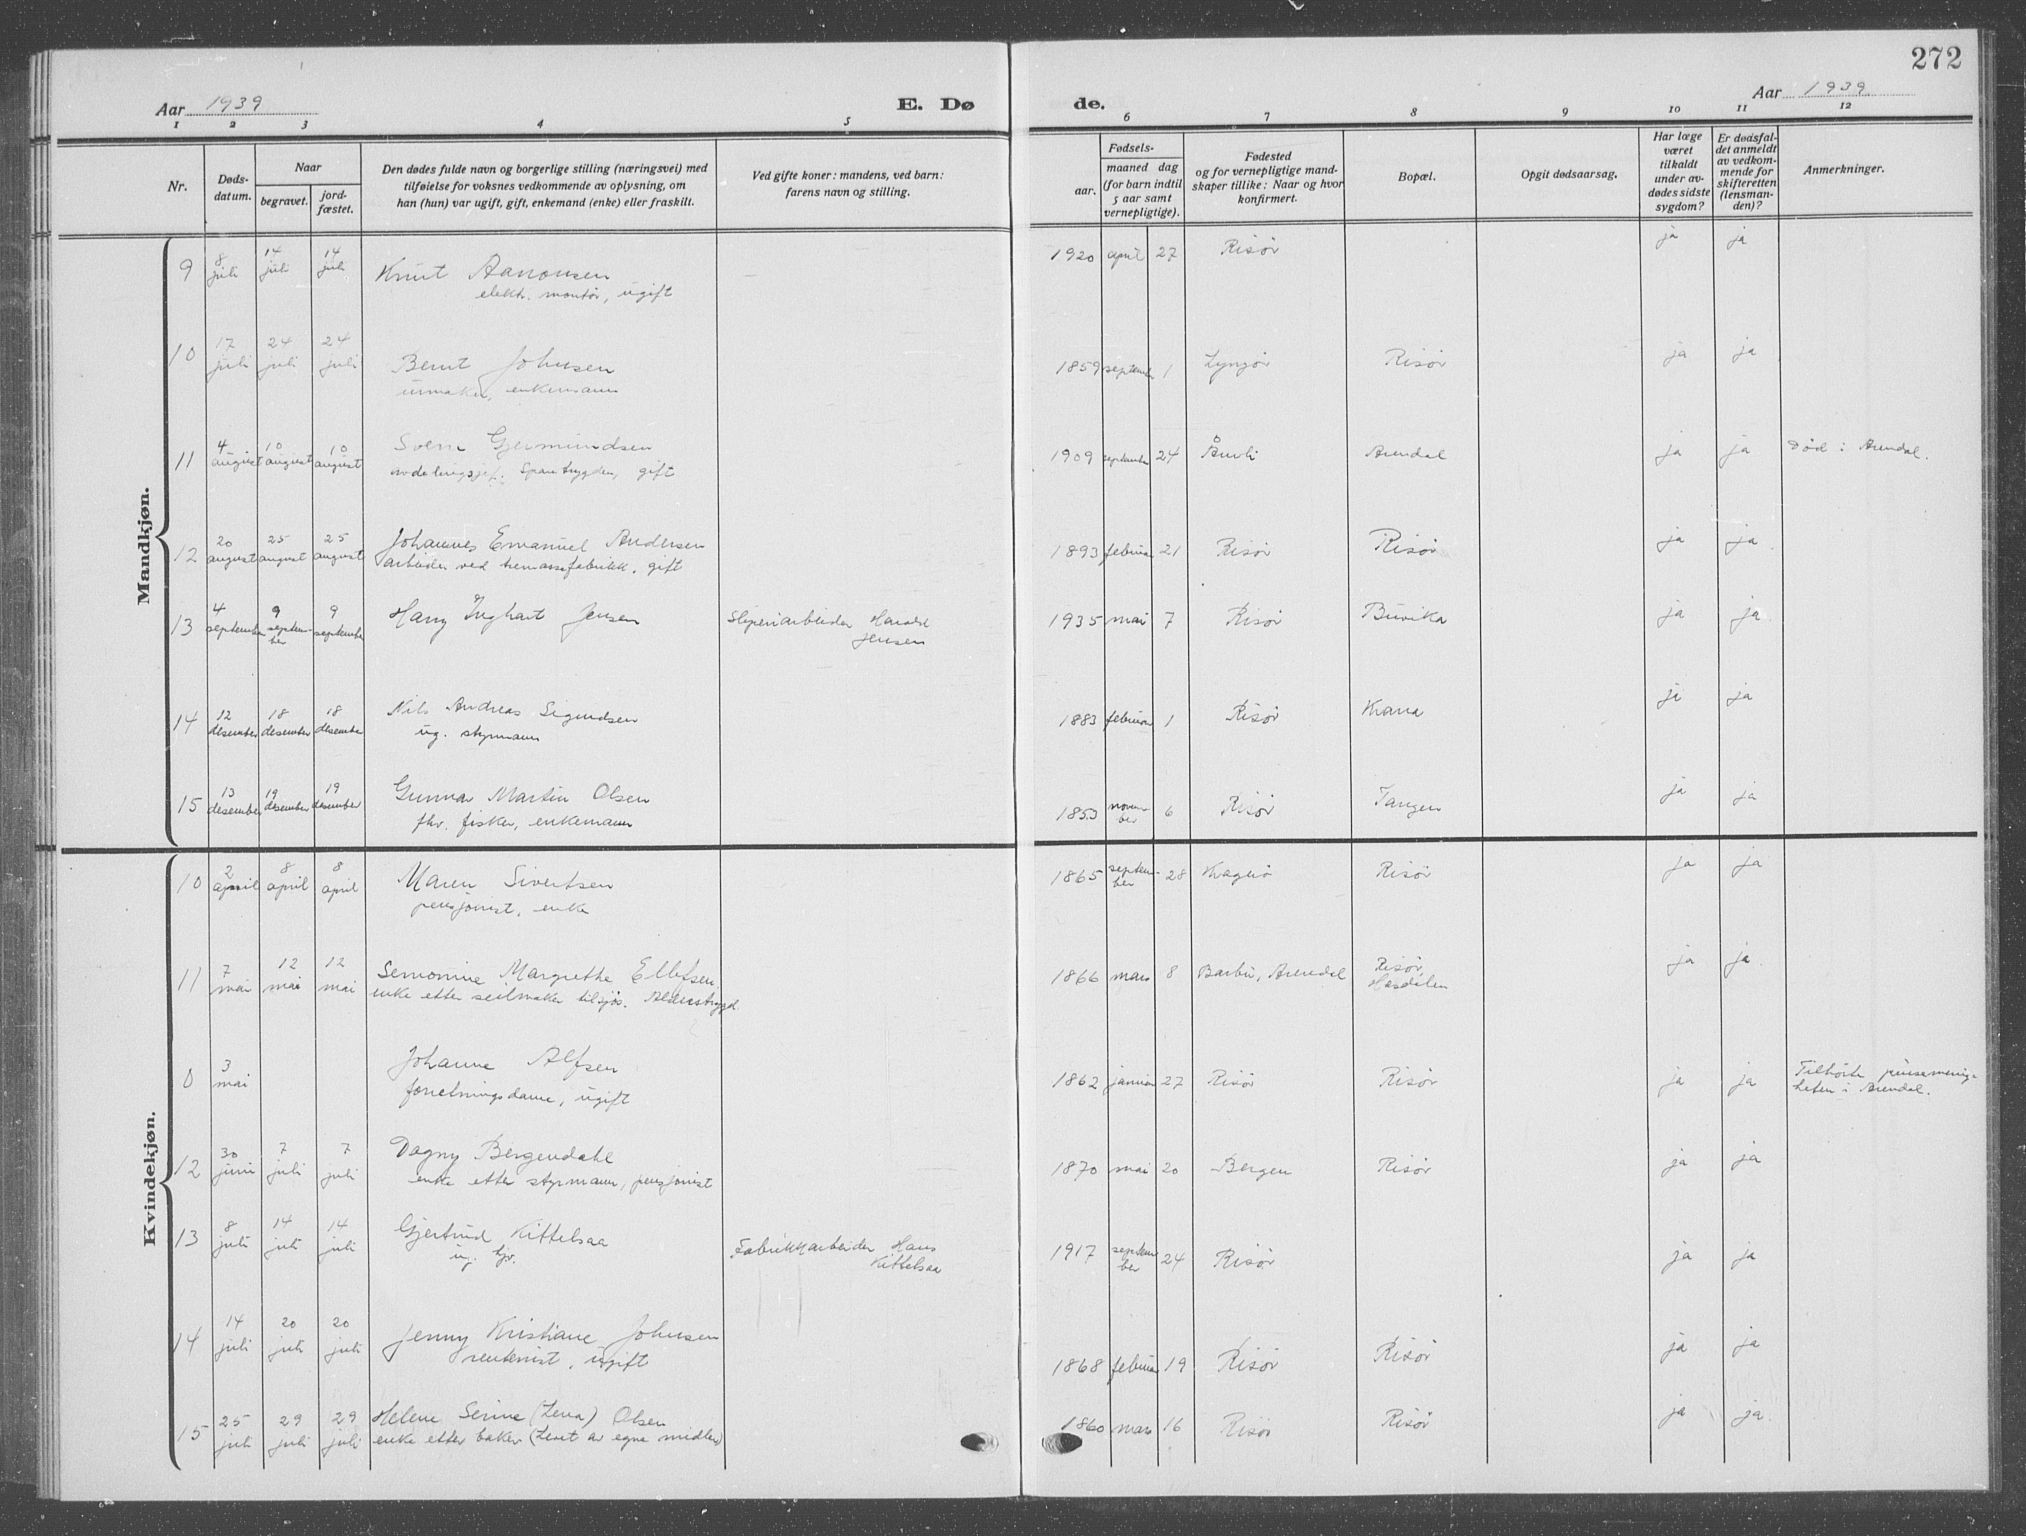 272
Aar 1939 E. Dø de. Aar 1939
1 2 3 4 5 6 7 8 9 10 11 12
Nr.
Døds-
datum.
Naar
begravet.
jord-
fæstet.
Den dødes fulde navn og borgerlige stilling (næringsvei) med
tilføielse for voksnes vedkommende av oplysning, om
han (hun) var ugift, gift, enkemand (enke) eller fraskilt.
Ved gifte koner: mandens, ved barn:
farens navn og stilling.
Fødsels-
aar.
maaned dag
(for barn indtil
5 aar samt
vernepligtige).
Fødested
og for vernepligtige mand-
skaper tillike: Naar og hvor
konfirmert.
Bopæl.
Opgit dødsaarsag.
Har læge
været
tilkaldt
under av-
dødes sidste
sygdom?
Er dødsfal-
det anmeldt
av vedkom-
mende for
skifteretten
(lensman-
den)?
Anmerkninger.
Mandkjøn.
9 8 juli 14 juli 14 juli Knut Aanonsen 1920 april 27 Risør ja ja
elektr. montør, ugift
10 17 juli 24 juli 24 juli Bernt Johnsen 1859 september 1 Lyngør Risør ja ja
urmaker, enkemann
11 4 august 10 august 10 august Svein Gjermundsen 1909 september 24 Åmli Arendal ja ja Død i Arendal.
avdelingssjef. gift
12 20 august 25 august 25 august Johannes Emanuel Andersen 1893 februar 21 Risør Risør ja ja
arbeider ved tremassefabrikk, gift
13 4 september 9 septem-
ber 9 september Harry Inghart Jensen Sliperiarbeider Harald
Jensen 1935 mai 7 Risør Buvika ja ja
14 12 desember 18 desember 18 desember Nils Andreas Sigurdsen 1883 februar 1 Risør Krana ja ja
ug. styrmann
15 13 desember 19 desember 19 desember Gunnar Martin Olsen 1853 novem-
ber 6 Risør Tangen ja ja
fhv. fisker, enkemann
Kvindekjøn.
10 2 april 8 april 8 april Maren Sivertsen 1865 septem-
ber 28 Kragerø Risør ja ja
pensjonist, enke
11 7 mai 12 mai 12 mai Semonine Margrethe Ellefsen 1866 mars 8 Barbu, Arendal Risør,
Hasdalen ja ja
enke etter seilmaker tilsjøs. Alderstrygd.
0 3 mai Johanne Alfsen 1862 januar 27 Risør Risør ja ja Tilhørte pinsemenig-
heten i Arendal.
forretningsdame, ugift
12 30 juni 7 juli 7 juli Dagny Bergendahl 1870 mai 20 Bergen Risør ja ja
enke etter styrmann, pensjonist
13 8 juli 14 juli 14 juli Gjertrud Kittelsaa Fabrikkarbeider Hans
Kittelsaa 1917 septem
ber 24 Risør ja ja
ug.
14 14 juli 20 juli 20 juli Jenny Kristiane Johnsen 1868 februar 19 Risør Risør ja ja
rentenist, ugift
15 25 juli 29 juli 29 juli Helene Serine (Lena) Olsen 1860 mars 16 Risør Risør ja ja
enke etter baker (Levet av egne midler)